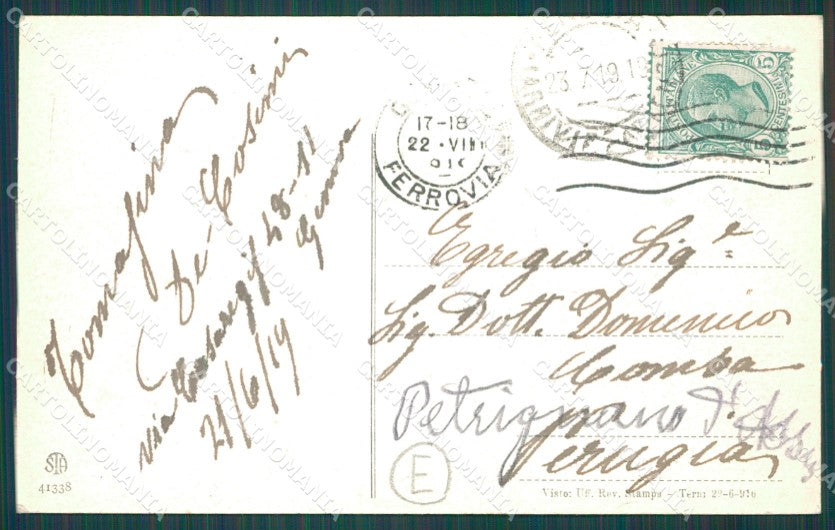 Tomasina
De-Cosimi
Via Casaregis 48-11
Genova
21/6/19
STA
41338
17-18
22 · VIII
FERROVIA
23.7.19.19
ARRIVI
5
Egregio Sig.e
Sig. Dott. Domenico
Comba
Petrignano d'Assisi
Perugia
E
Visto: Uf. Rev. Stampa - Terni 29-6-916
CARTOLINOMANIA